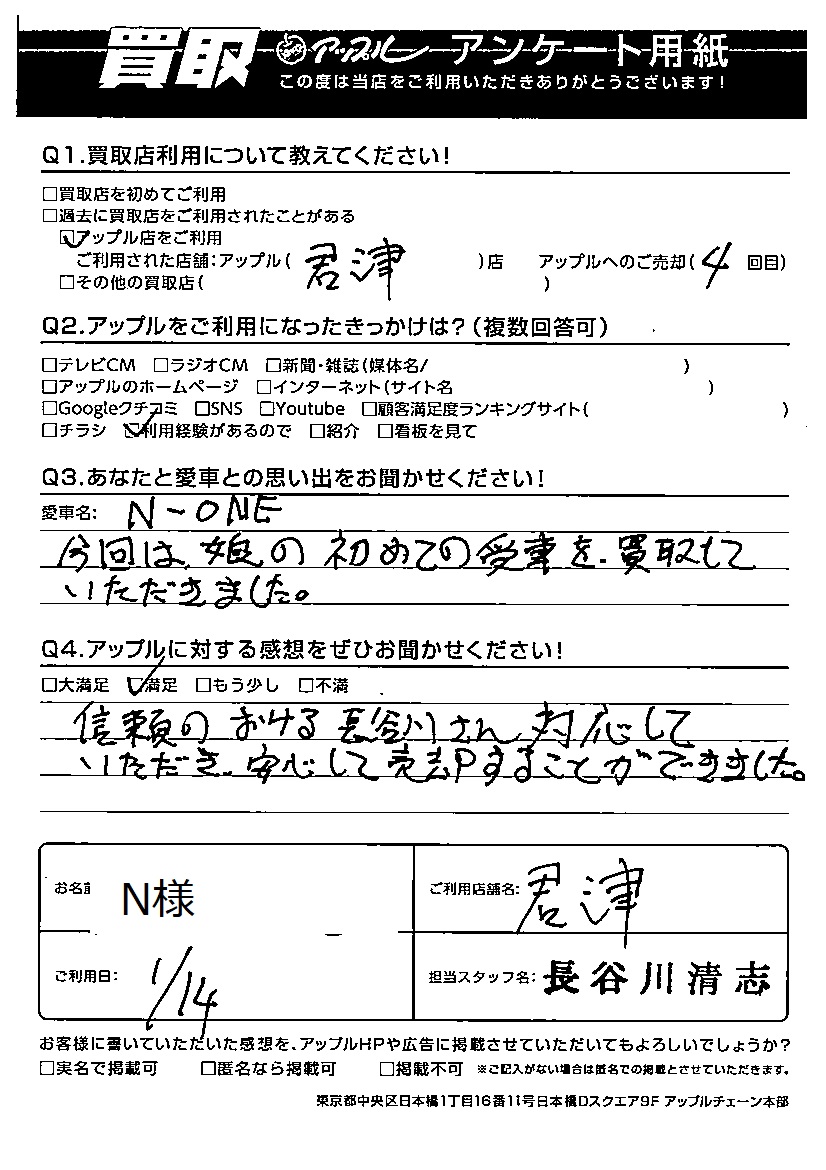 買取 アップル アンケート用紙
この度は当店をご利用いただきありがとうございます!
Q1.買取店利用について教えてください!
□買取店を初めてご利用
□過去に買取店をご利用されたことがある
☑アップル店をご利用
ご利用された店舗:アップル( 君津 )店 アップルへのご売却( 4 回目)
□その他の買取店( )
Q2.アップルをご利用になったきっかけは?(複数回答可)
□テレビCM □ラジオCM □新聞・雑誌(媒体名/ )
□アップルのホームページ □インターネット(サイト名 )
□Googleクチコミ □SNS □Youtube □顧客満足度ランキングサイト( )
□チラシ ☑利用経験があるので □紹介 □看板を見て
Q3.あなたと愛車との思い出をお聞かせください!
愛車名: N-ONE
今回は、娘の初めての愛車を、買取して
いただきました。
Q4.アップルに対する感想をぜひお聞かせください!
□大満足 ☑満足 □もう少し □不満
信頼のおける長谷川さん、対応して
いただき、安心して売却することができました。
お名前 N様 ご利用店舗名: 君津
ご利用日: 1/14 担当スタッフ名: 長谷川清志
お客様に書いていただいた感想を、アップルHPや広告に掲載させていただいてもよろしいでしょうか?
□実名で掲載可 □匿名なら掲載可 □掲載不可 ※ご記入がない場合は匿名での掲載とさせていただきます。
東京都中央区日本橋1丁目16番11号日本橋Dスクエア9F アップルチェーン本部